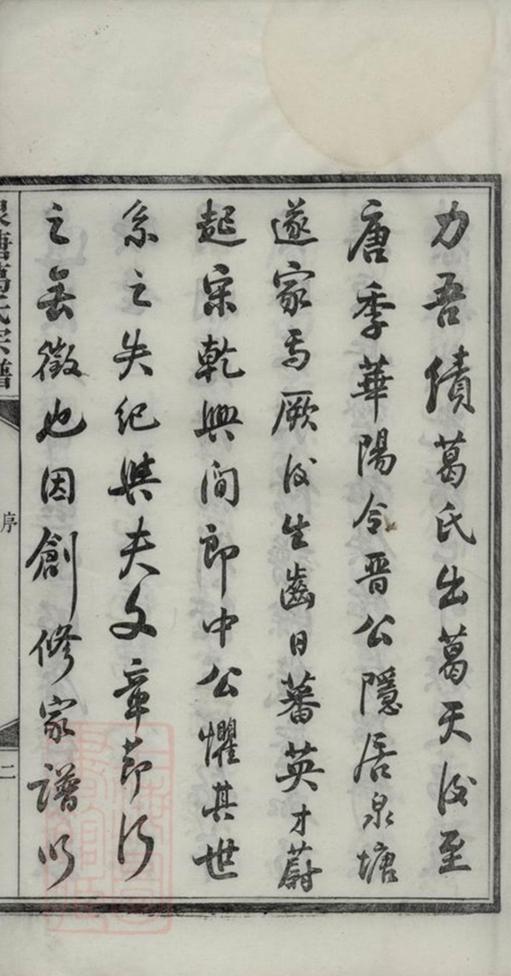 力吾績葛氏出葛天後至
唐季華陽令晋公隱居泉塘
遂家焉厥後生齒日蕃英才蔚
起宋乾興間郎中公懼其世
系之失紀與夫文章節行
之無徵也因創修家譜以
泉塘葛氏宗譜
序
二